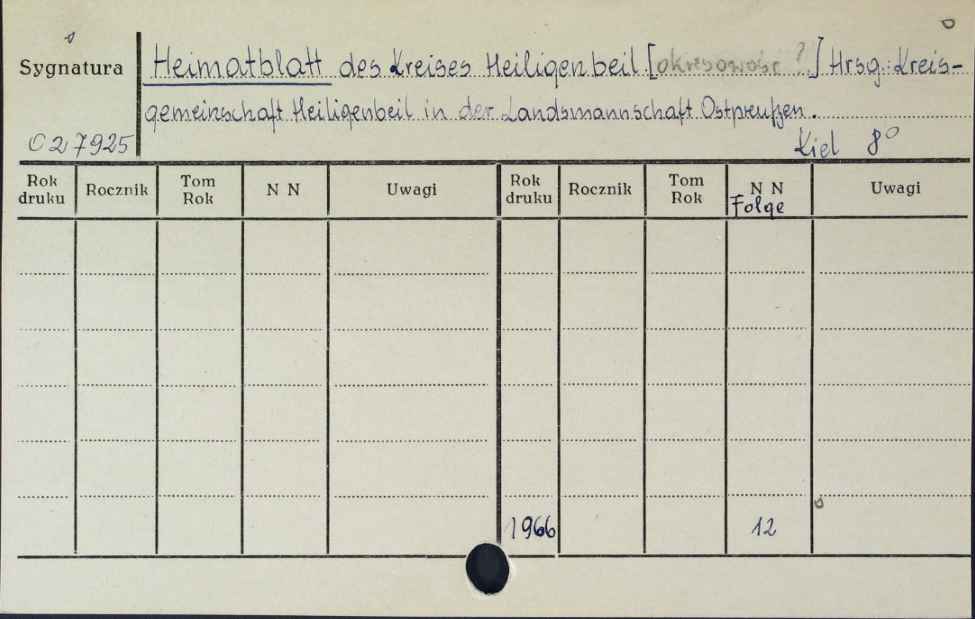 Sygnatura Heimatblatt des Kreises Heiligenbeil. [okresowość ? ...] Hrsg.: Kreis-
gemeinschaft Heiligenbeil in der Landsmannschaft Ostpreußen.
027925 Kiel 8°
Rok druku Rocznik Tom Rok N N Uwagi Rok druku Rocznik Tom Rok N N Folge Uwagi
1966 12